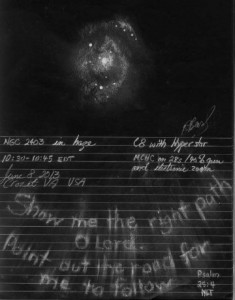 NGC 2403 in haze C8 with Hyperstar
10:30-10:45 EDT MCHC on 28c/
and
June 8, 2013
Crozet VA USA
Show me the right path
O Lord
Point out the road for
me to follow
Psalm
25:4
NLT